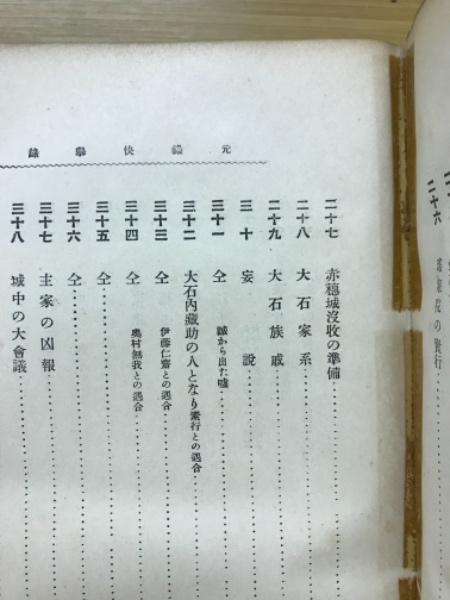 元祿快擧錄
二十六
の賢行
二十七 赤穗城沒收の準備
二十八 大石家系
二十九 大石族戚
三十 妄說
三十一 仝 誠から出た噓
三十二 大石內藏助の人となり 素行との遇合
三十三 仝 伊藤仁齋との遇合
三十四 仝 奧村無我との遇合
三十五 仝
三十六 仝
三十七 主家の凶報
三十八 城中の大會議